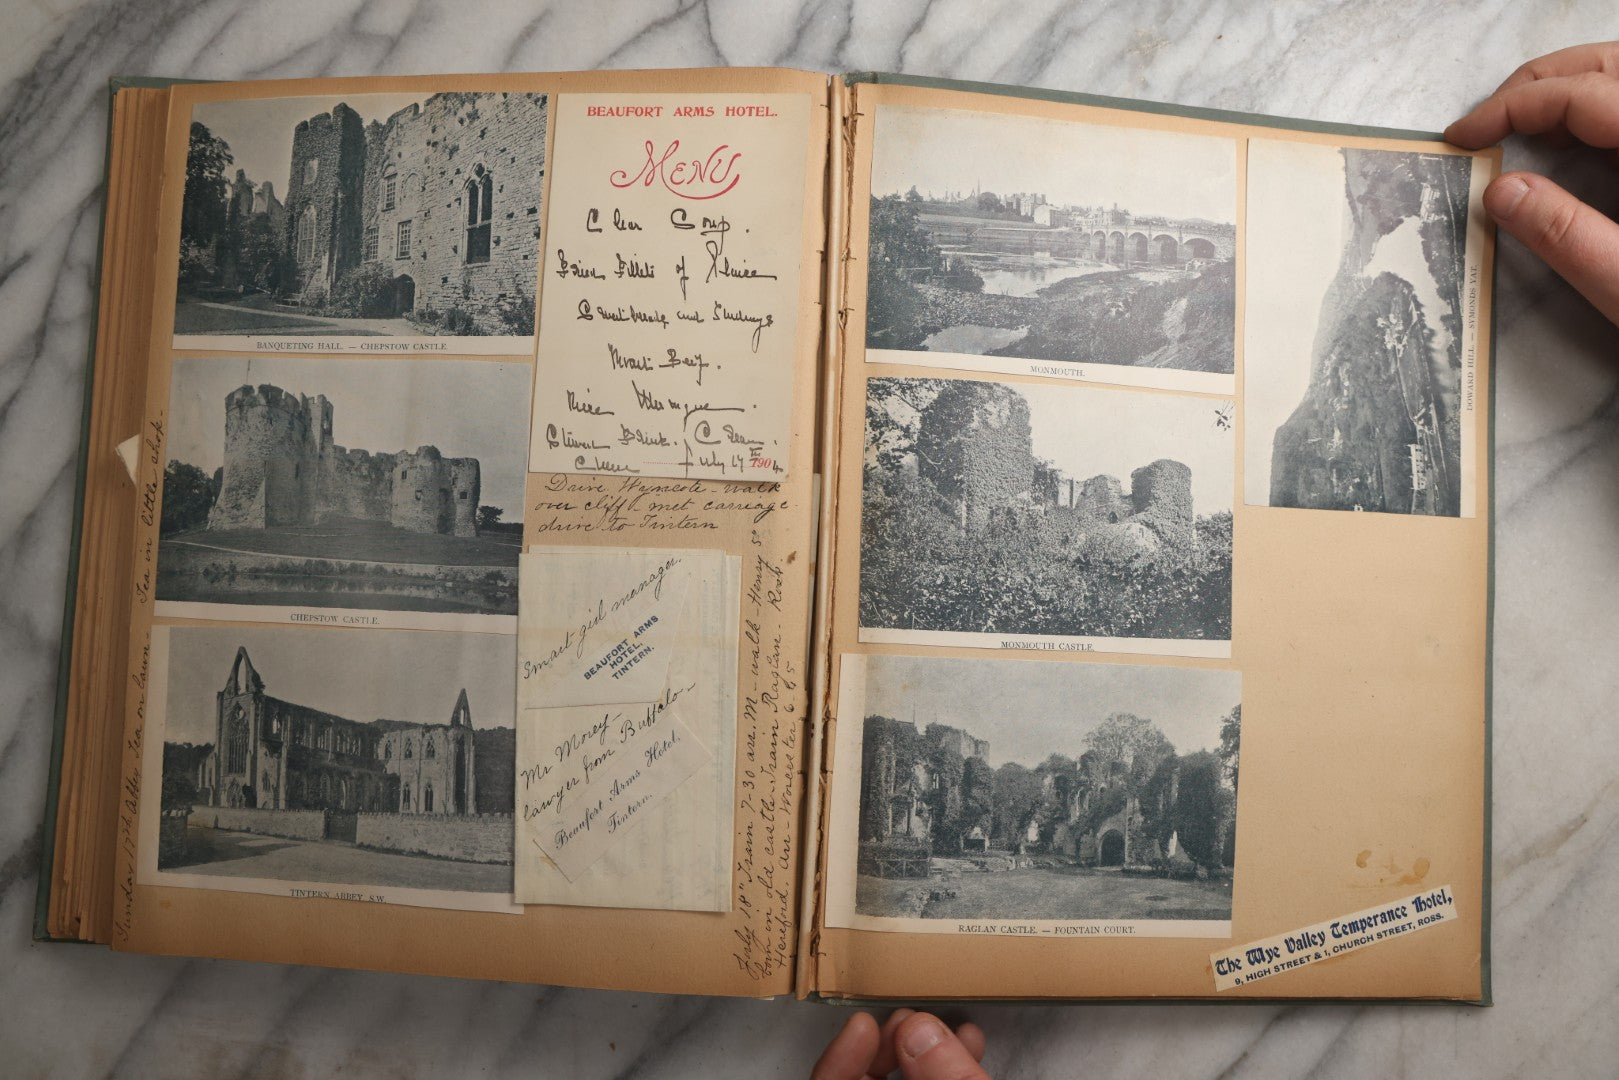 BANQUETING HALL. — CHEPSTOW CASTLE
CHEPSTOW CASTLE.
TINTERN ABBEY, S.W.
Sunday 17th Abbey Tea on lawn - Tea in little shop -
BEAUFORT ARMS HOTEL.
MENU
Clear Soup.
Fried Fillets of Plaice
Sweetbreads and
Roast Beef.
Rice Meringue.
Stewed Fruit. / Cream.
Cheese July 17th 1904
Drive Wyncote - walk
over cliff - met carriage
drive to Tintern
Smart girl manager.
BEAUFORT ARMS
HOTEL,
TINTERN.
Mr Morey -
lawyer from Buffalo -
Beaufort Arms Hotel.
Tintern.
July 18" Train 7-30 arr. M - walk - Henry 5"
born in old castle. Train Raglan. Ross.
Hereford. Arr - Worcester 6-45
MONMOUTH.
MONMOUTH CASTLE.
RAGLAN CASTLE. — FOUNTAIN COURT.
DOWARD HILL. — SYMONDS YAT.
The Wye Valley Temperance Hotel,
9, HIGH STREET & 1, CHURCH STREET, ROSS.